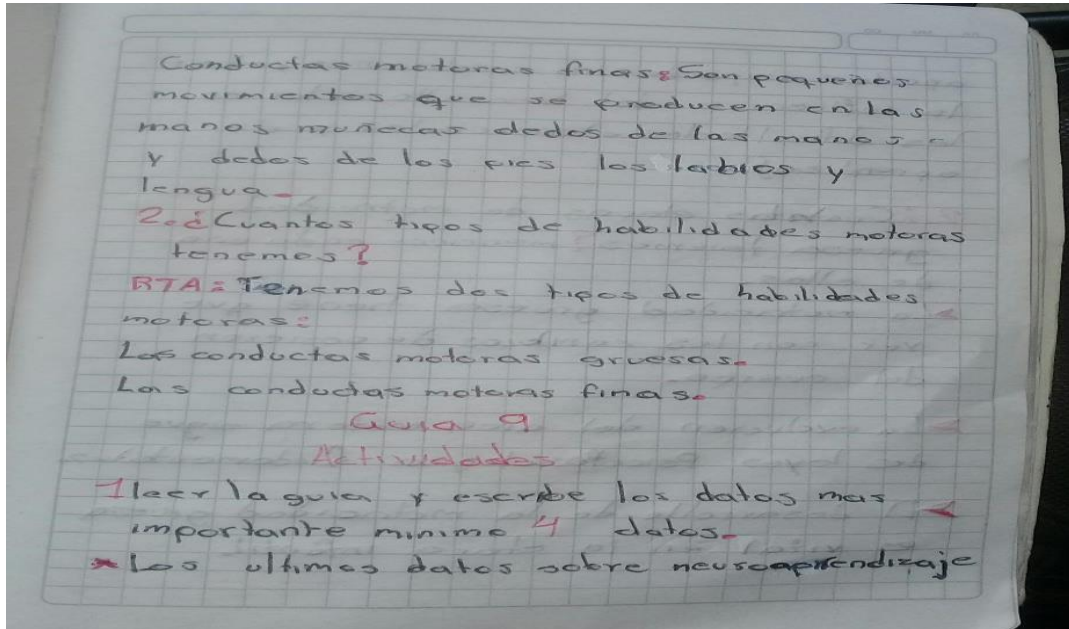 Conductas motoras finas: Son pequeños
movimientos que se producen en las
manos muñecas dedos de las manos
y dedos de los pies los labios y
lengua.
2. ¿Cuantos tipos de habilidades motoras
tenemos?
RTA: Tenemos dos tipos de habilidades
motoras:
Las conductas motoras gruesas.
Las conductas motoras finas.
Guia 9
Actividades
1 leer la guia y escribe los datos mas
importante minimo 4 datos.
* Los ultimos datos sobre neuroaprendizaje